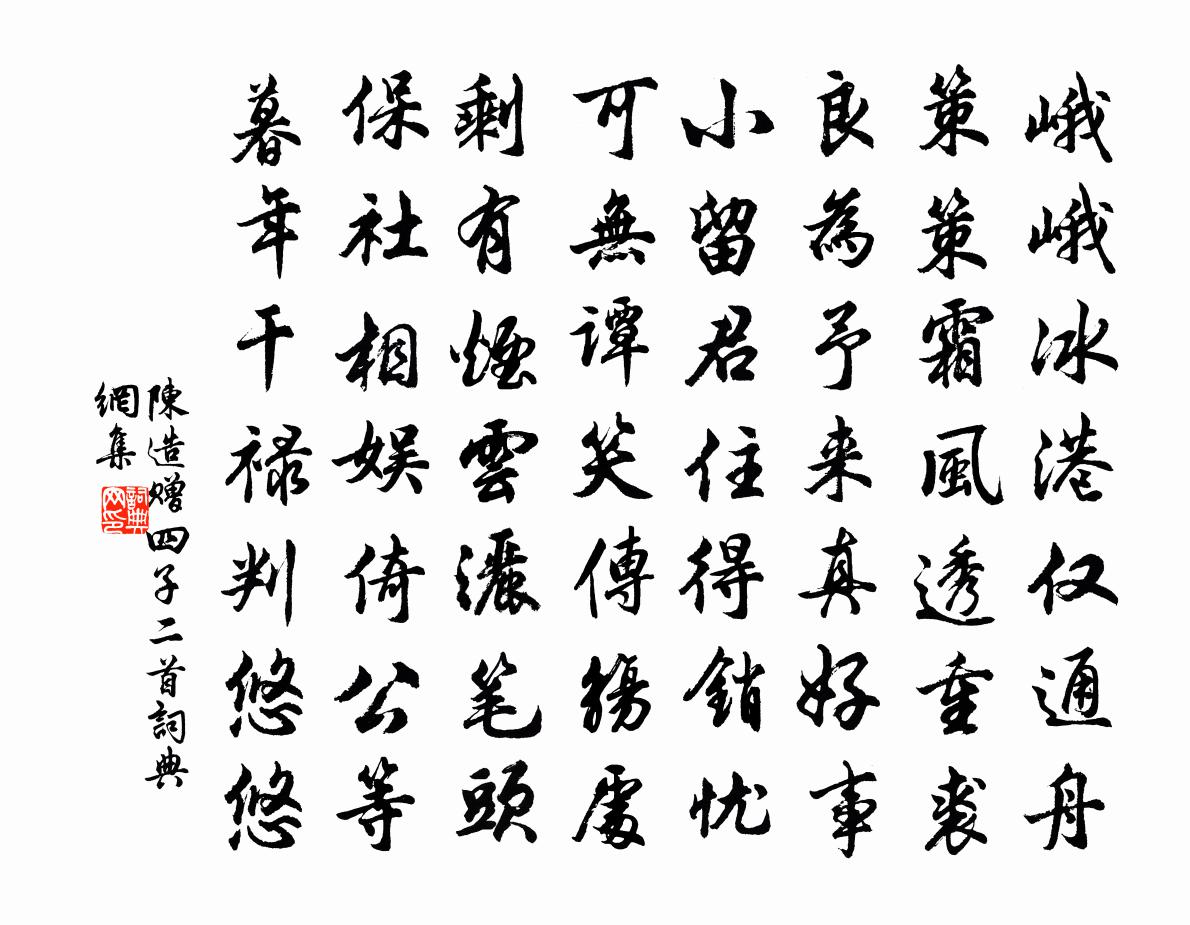 峨峨冰港仅通舟
策策霜風透重裘
良為予来真好事
小留君住得銷忧
可無譚笑傳觴處
剩有煙雲灑笔頭
保社相娱倚公等
暮年干禄判悠悠
陳造赠四子二首詞典
網集
詞典网印